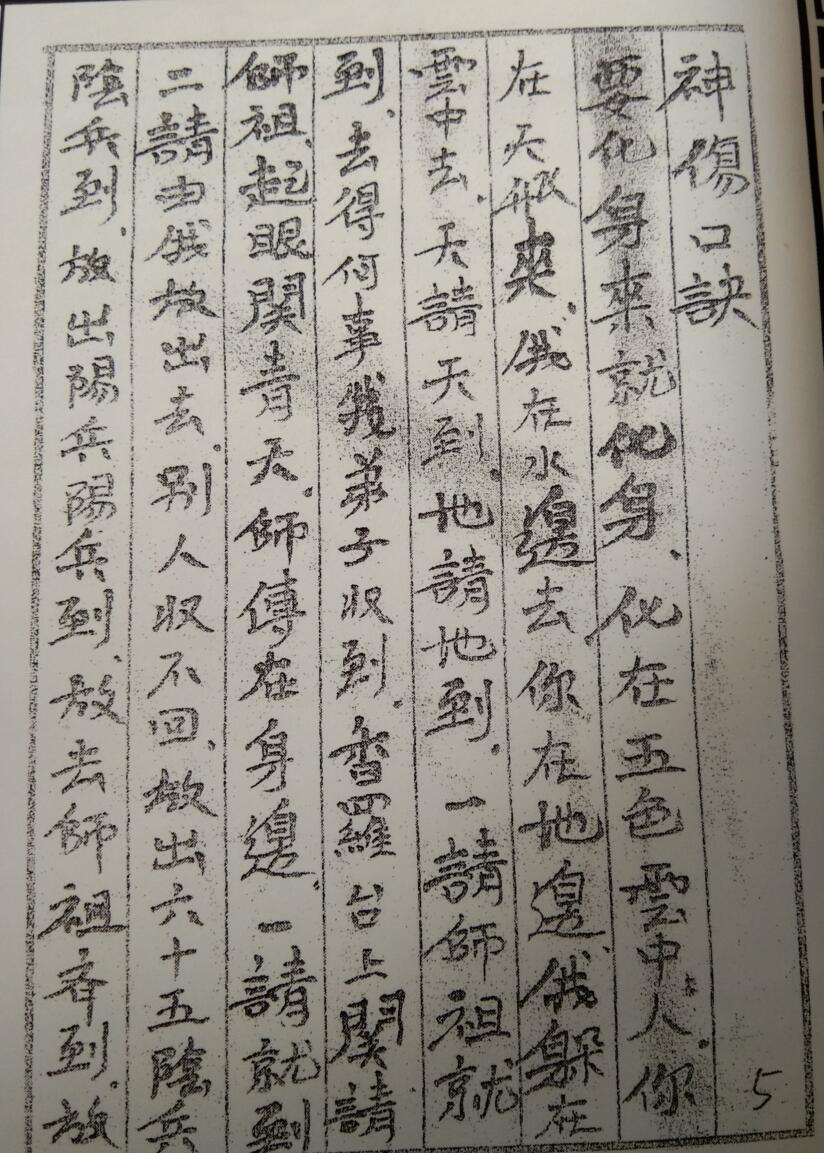 神傷口訣
要化身來就化身、化在五色雲中人.你
在天邊來.俄在水邊去你在地邊.俄躲在
雲中去.天請天到.地請地到.一請師祖就
到.去得何事我弟子収到.香羅台上関請
師祖.起眼関青天.師傅在身邊.一請就到
二請由俄放出去.別人収不回.放出六十五陰兵
陰兵到.放出陽兵陽兵到.放去師祖斉到.放
5